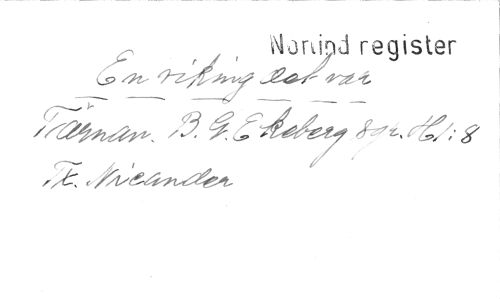 Norlind register
En viking det var
Tärnan. B. G. Ekeberg 8gr. H1:8
Tx. Nicander